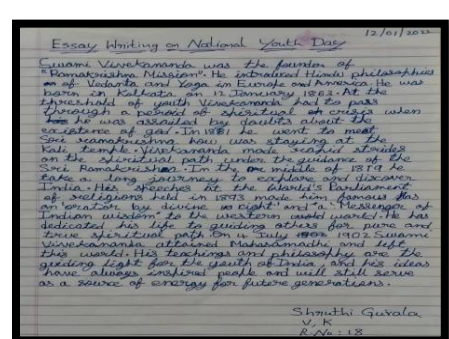 12/01/2022
Essay Writing on National Youth Day
Swami Vivekananda was the founder of
"Ramakrishna Mission". He intralized Hindu philosophies
of Vedanta and Yoga in Europe and America. He was
born in Kolkata on 12 January 1863. At the
threshold of youth Vivekananda had to pass
through a period of spiritual crisis when
he was assailed by doubts about the
existance of god. In 1881 he went to meet
Sri ramakrishna how was staying at the
Kali temple. Vivekananda made rapid strides
on the spiritual path under the guidance of the
Sri Ramakrishna. In the middle of 1819 he
take a long journey to explore and discover
India. His speeches at the World's Parliament
of religions held in 1893 made him famous as
an "orator by divine right" and "a Messenger of
Indian wisdom" to the western world. He has
dedicated his life to guiding others for pure and
true spiritual path on 4 July 1902 Swami
Vivekananda attained Mahasamadhi and left
this world. His teachings and philosophy are the
guiding light for the youth of India, and his ideas
have always inspired people and will still serve
as a source of energy for future generations.
Shruthi Gurala
V, K
R.No: 18